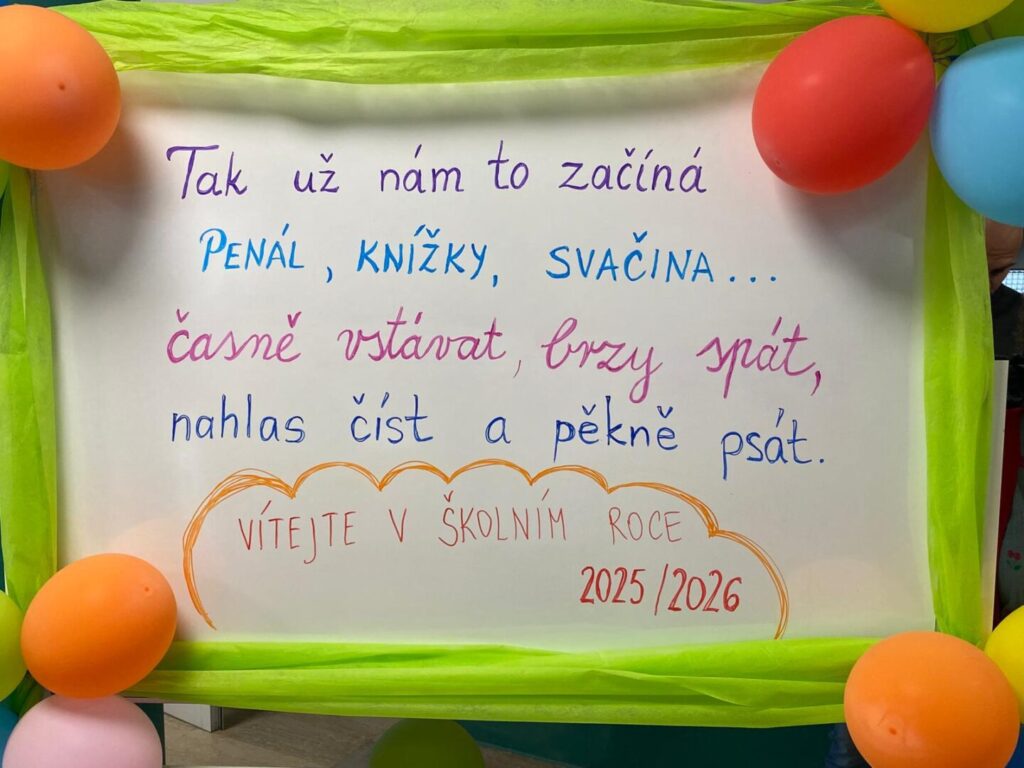 Tak už nám to začíná
PENÁL, KNÍŽKY, SVAČINA...
časně vstávat, brzy spát,
nahlas číst a pěkně psát.
VÍTEJTE V ŠKOLNÍM ROCE
2025/2026